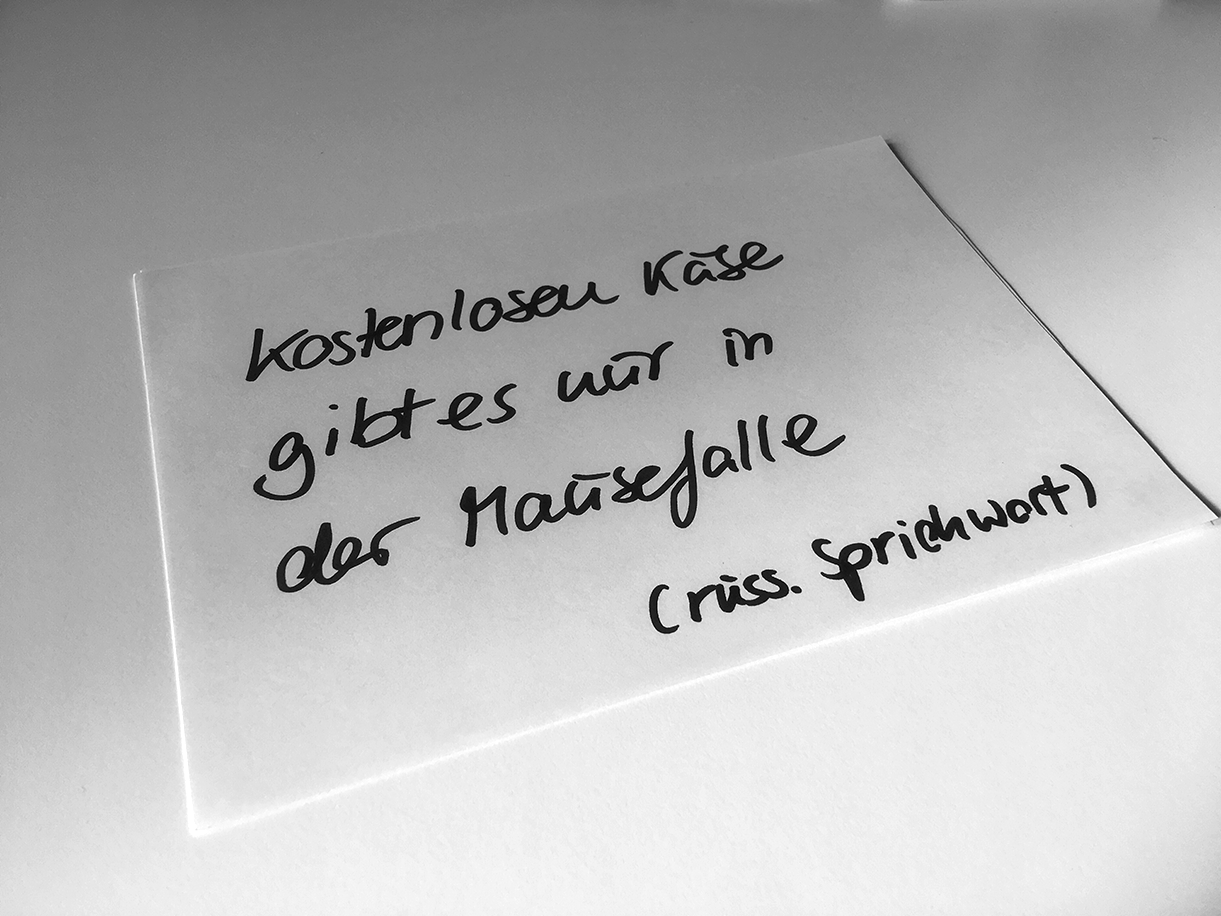 Kostenlosen Käse
gibt es nur in
der Mausefalle
(russ. Sprichwort)